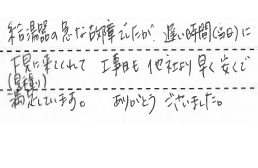 給湯器の急な故障でしたが、遅い時間(当日)に
下見に来てくれて 工事日も 他社より早く安くて
(見積り)
満足しています。 ありがとうございました。